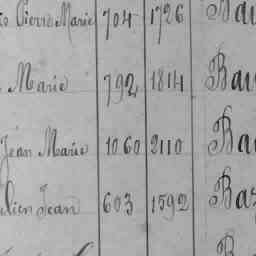 Pierre Marie 704 1726 Bau
Marie 792 1814 Bau
Jean Marie 1060 2110 Ba
Jean 603 1592 Baz